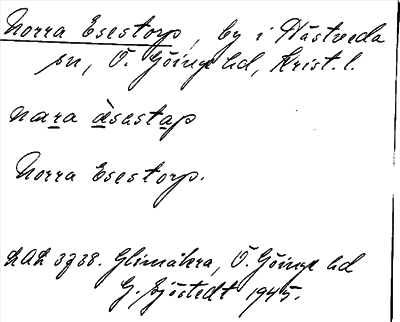 Norra Esestorp, by i Hästveda
sn, Ö. Göinge hd, Krist. l.
nara àsestap
Norra Esestorp.
LAL 3738. Glimåkra, Ö. Göinge hd
G. Sjöstedt 1945.